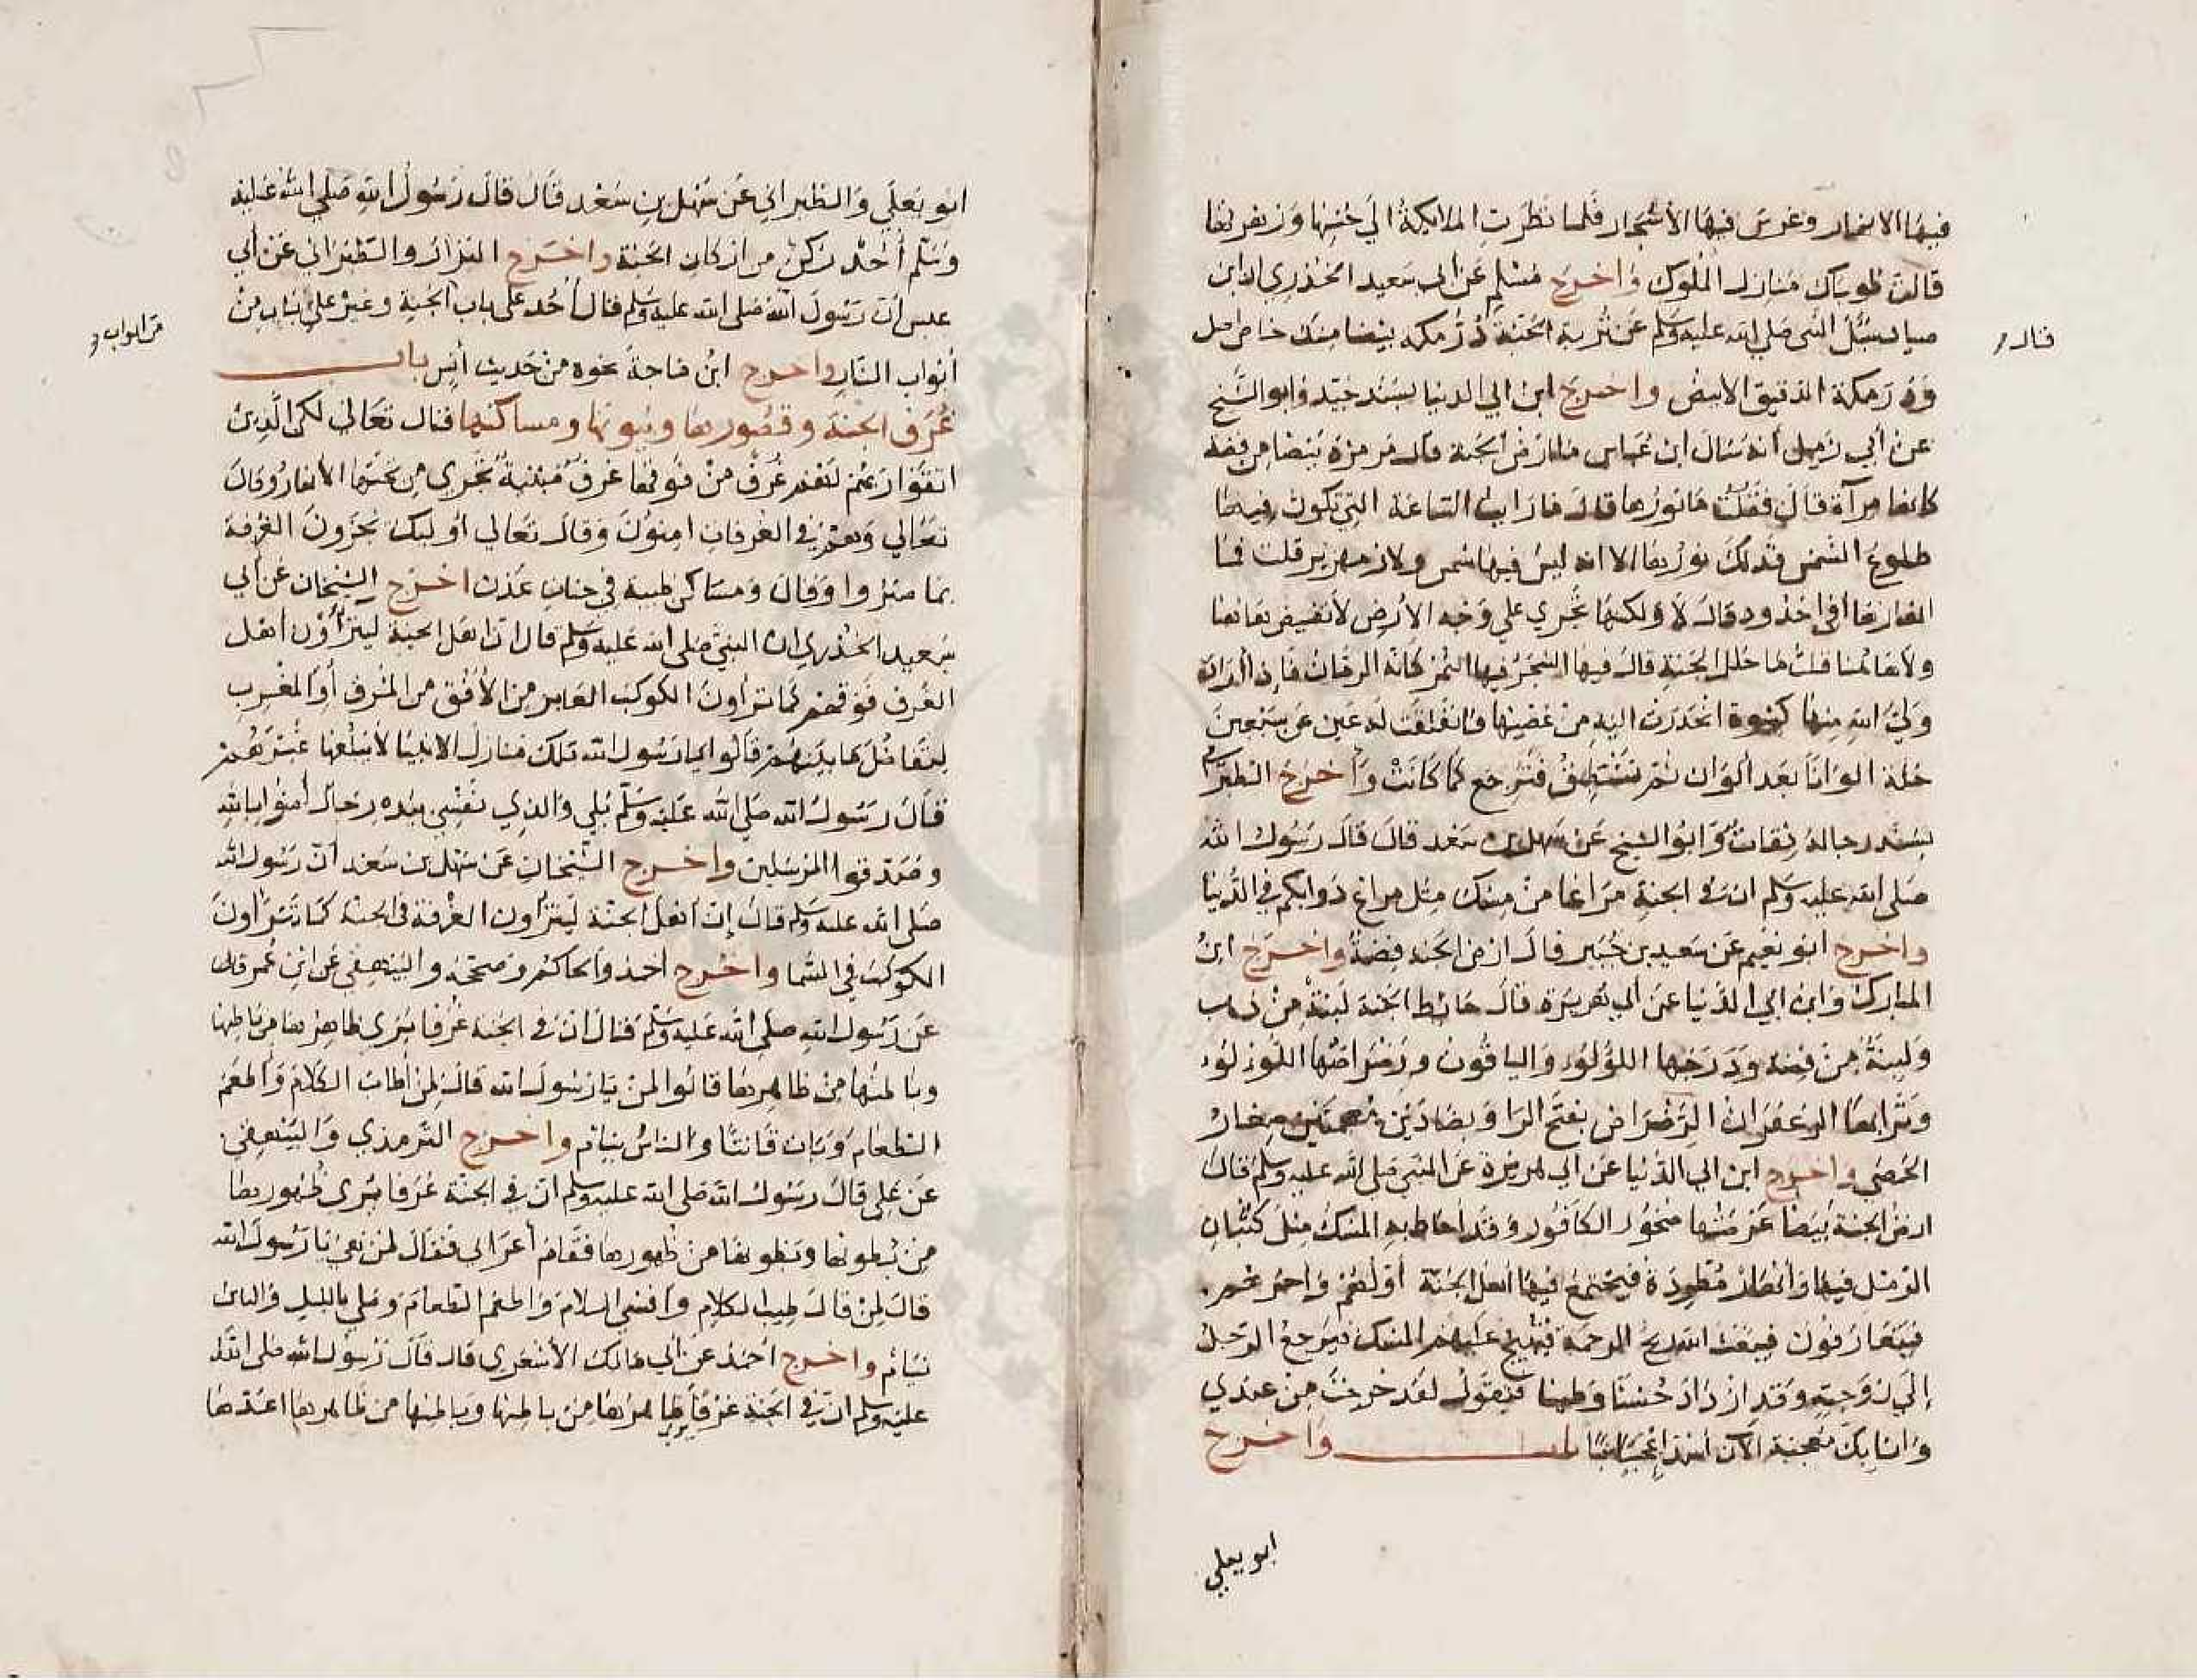 فيها الانهار وغرس فيها الأشجار فلما نظرت الملائكة الي حسنها وزهرتها
قالت طوباك منازل الملوك واخرج مسلم عن ابي سعيد الخدري ان ابن
صياد سئل النبي صلي الله عليه وسلم عن تربة الجنة درمكة بيضا مسك خالص
قال و
ودرمكة الدقيق الأبيض واخرج ابن ابي الدنيا بسند جيد وابو الشيخ
عن أبي زميل أنه سأل ابن عباس ما ارض الجنة قال مرمرة بيضا من فضة
كانها مرآة قال فقلت ما نورها قال ما رايت الساعة التي تكون فيها
طلوع الشمس فذلك نورها الا انه ليس فيها شمس ولا زمهرير قلت فما
انهارها أفي اخدود قال لا ولكنها تجري علي وجه الأرض لا تفيض هاهنا
ولا هاهنا قلت ما حلل الجنة قال فيها الشجر فيها الثمر كانه الرمان فاذا أراد
ولي الله منها كسوة انحدرت اليه من غصنها وانفلقت له عن سبعين
حلة الوانا بعد ألوان ثم تنطبق فترجع كما كانت وأخرج الطبراني
بسند رجاله ثقات وابو الشيخ عن سهل بن سعد قال قال رسول الله
صلي الله عليه وسلم ان في الجنة مراغا من مسك مثل مراغ دوابكم في الدنيا
واخرج ابو نعيم عن سعيد بن جبير قال ارض الجنة فضة واخرج ابن
المبارك وابن ابي الدنيا عن أبي هريرة قال حائط الجنة لبنة من ذهب
ولبنة من فضة ودرجها اللؤلؤ والياقوت ورضراضها اللؤلؤ
وترابها الزعفران الرضراض بفتح الرا وبضادين معجمتين صغار
الحصي واخرج ابن ابي الدنيا عن ابي هريرة عن النبي صلى الله عليه وسلم قال
ارض الجنة بيضا عرصتها صخور الكافور وقد احاط به المسك مثل كثبان
الرمل فيها وأنهار مطردة فيجتمع فيها أهل الجنة أولهم وآخرهم
فيتعارفون فيبعث الله ريح الرحمة فتهيج عليهم المسك فيرجع الرجل
إلي زوجته وقد ازداد حسنا وطيبا فتقول لقد خرجت من عندي
وانا بك معجبة الآن أشد إعجابا واخرج
ابو يعلي
ابو يعلي والطبراني عن سهل بن سعد قال قال رسول الله صلي الله عليه
وسلم أُحُد ركن من اركان الجنة واخرج البزار والطبراني عن أبي
عبس ان رسول الله صلي الله عليه وسلم قال أحد علي باب الجنة وعير علي باب من
من ابواب و
أبواب النار واخرج ابن ماجة نحوه من حديث أنس باب
غرف الجنة وقصورها وبيوتها ومساكنها قال تعالي لكن الذين
اتقوا ربهم لهم غرف من فوقها غرف مبنية تجري من تحتها الأنهار وقال
تعالي وهم في الغرفات امنون وقال تعالي أوليك يجزون الغرفة
بما صبروا وقال ومساكن طيبة في جنات عدن اخرج الشيخان عن أبي
سعيد الخدري ان النبي صلى الله عليه وسلم قال ان اهل الجنة ليتراؤن أهل
الغرف فوقهم كما تراون الكوكب الغابر من الأفق من المشرق أو المغرب
لتفاضل ما بينهم قالوا يا رسول الله تلك منازل الانبيا لا يبلغها غيرهم
قال رسول الله صلي الله عليه وسلم بلي والذي نفسي بيده رجال أمنوا بالله
وصدقوا المرسلين واخرج الشيخان عن سهل بن سعد أن رسول الله
صلى الله عليه وسلم قال إن اهل الجنة ليتراون الغرفة في الجنة كما تتراون
الكوكب في السما واخرج أحمد والحاكم وصححه والبيهقي عن ابن عمر قال
عن رسول الله صلي الله عليه وسلم قال ان في الجنة غرفا يري ظاهرها من باطنها
وباطنها من ظاهرها قالوا لمن يا رسول الله قال لمن أطاب الكلام وأطعم
الطعام وبات قانتا والناس نيام واخرج الترمذي والبيهقي
عن علي قال رسول الله صلى الله عليه وسلم ان في الجنة غرفا يرى ظهورها
من بطونها وبطونها من ظهورها فقام أعرابي فقال لمن هي يا رسول الله
قال لمن قال طيب الكلام وأفشى السلام واطعم الطعام وصلي بالليل والناس
نيام واخرج احمد عن أبي مالك الأشعري قال قال رسول الله صلى الله
عليه وسلم ان في الجنة غرفا ظاهرها من باطنها وباطنها من ظاهرها اعدها